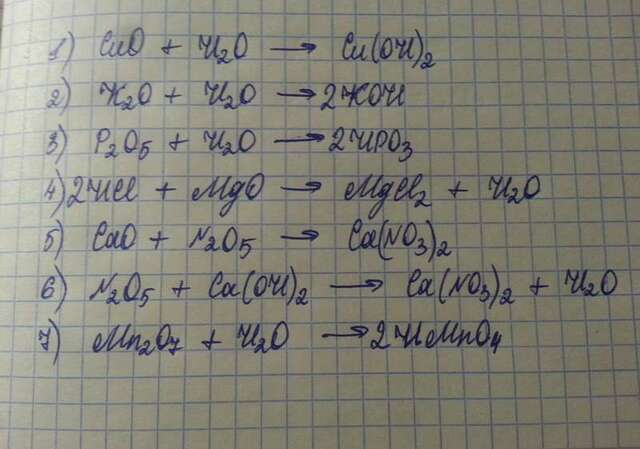 1) CuO + H₂O → Cu(OH)₂
2) K₂O + H₂O → 2KOH
3) P₂O₅ + H₂O → 2HPO₃
4) 2HCl + MgO → MgCl₂ + H₂O
5) CaO + N₂O₅ → Ca(NO₃)₂
6) N₂O₅ + Ca(OH)₂ → Ca(NO₃)₂ + H₂O
7) Mn₂O₇ + H₂O → 2HMnO₄